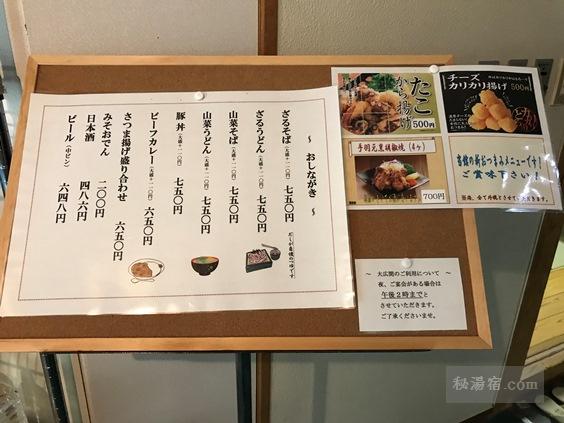 ～ おしながき ～
ざるそば（大盛＋一二〇円） 七五〇円
だしが自慢のつゆです
ざるうどん（大盛＋一二〇円） 七五〇円
山菜そば（大盛＋一二〇円） 七五〇円
山菜うどん（大盛＋一二〇円） 七五〇円
豚丼（大盛＋一二〇円） 七五〇円
ビーフカレー（大盛＋一二〇円） 六五〇円
さつま揚げ盛り合わせ 六五〇円
みそおでん 二〇〇円
日本酒 四八六円
ビール（中ビン） 六四八円
たこ
から揚げ
500円
手羽元黒胡椒焼（4ヶ）
700円
チーズ
カリカリ揚げ
500円
当館の新おつまみメニューです！
ご賞味下さい！
～ 大広間のご利用について ～
夜、ご宴会がある場合は
午後２時までと
させていただきます。
ご了承くださいませ。
秘湯宿.com